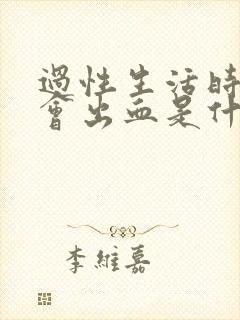 過性生活時
會出血是什
李維嘉